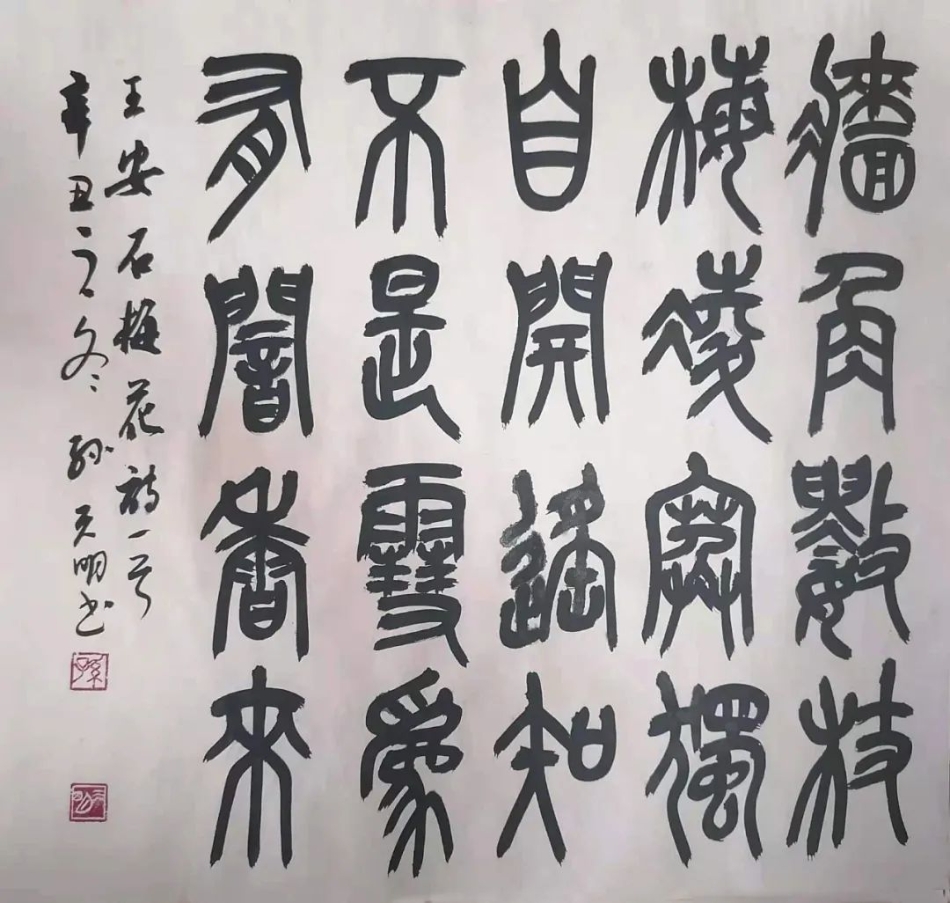 牆角數枝
梅凌寒獨
自開遙知
不是雪爲
有闇香來
王安石梅花詩一首
辛丑之冬 孙天明书
孫